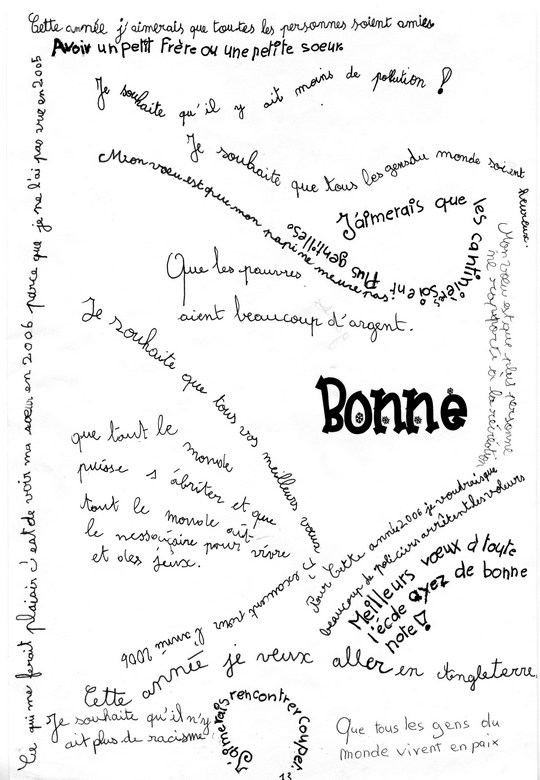 Cette année j'aimerais que toutes les personnes soient amies
Avoir un petit frère ou une petite soeur
Je souhaite qu'il y ait moins de pollution !
Je souhaite que tous les gens du monde soient heureux.
Mon voeu est que mon papi ne meure pas
J'aimerais que les cantinières soient plus gentilles
Mon voeu est que plus personne
ne rapporte à la récréation
Que les pauvres
aient beaucoup d'argent.
Je souhaite que tous vos meilleurs voeux
s'exaucent pour l'année 2006
Bonne
que tout le monde
puisse s'abriter et que
tout le monde ait
le nessessaire pour vivre
et des jeux.
Pour cette année 2006 je voudrais que
beaucoup de policiers arrêtent les voleurs
Meilleurs voeux à toute
l'école ayez de bonne
note !
Cette année je veux aller en Angleterre.
Je souhaite qu'il n'y
ait plus de racisme
J'aimerais rencontrer Couper.
Que tous les gens du
monde vivent en paix
Ce qui me ferait plaisir c'est de voir ma soeur en 2006 parce que je ne l'ai pas vue en 2005
13